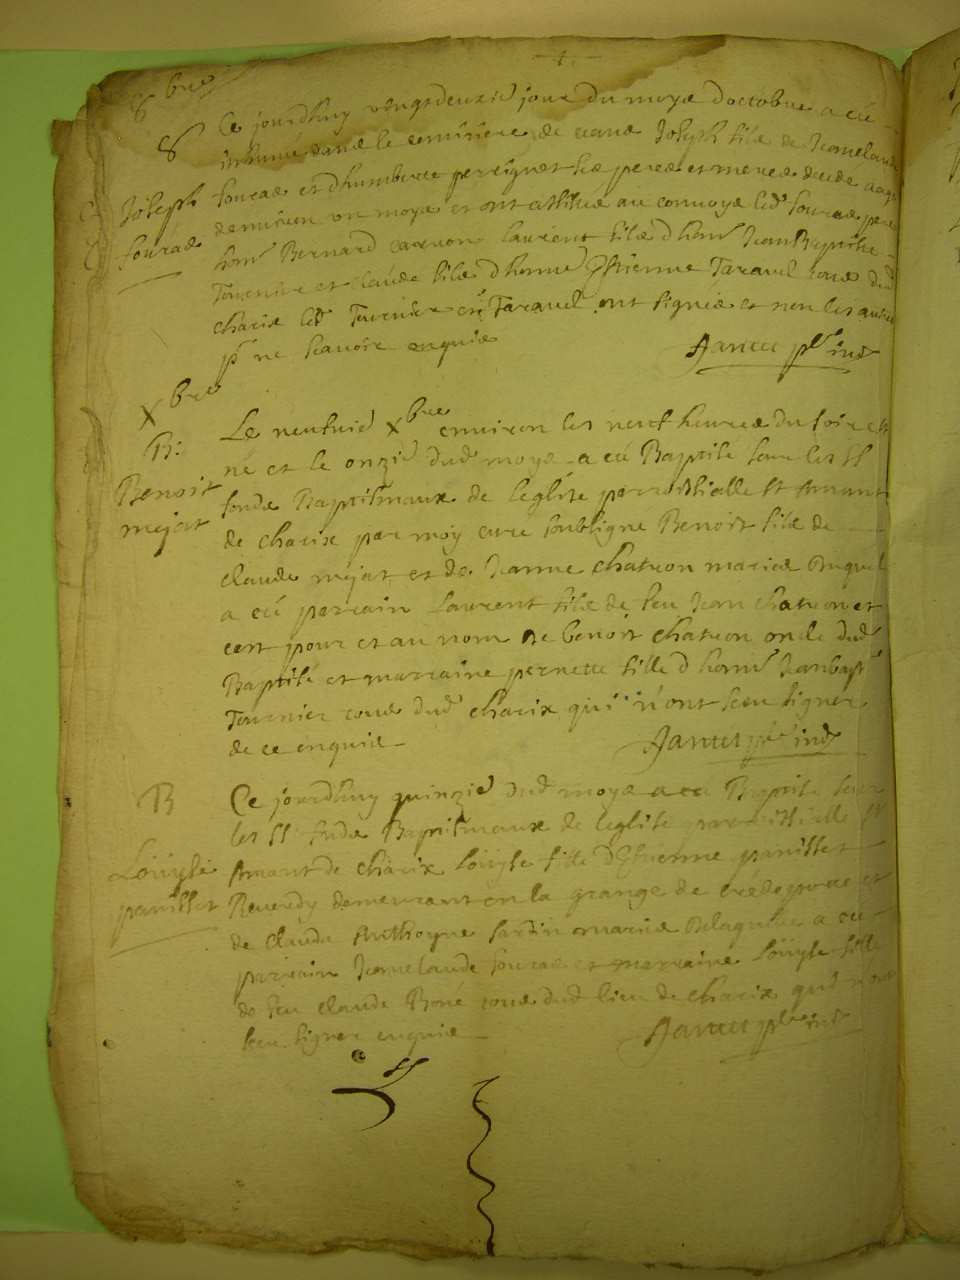 8 bre
S Ce jourdhuy vengtdeuzie jour du moys doctobre a esté
inhumé dans le cemitiere de ceans Joseph fils de Jeanclaude
Joseph fouras et dhumberte perrignet ses peres et meres decede aagé
fouras denviron un moys et ont assisté au convoye led fouras pere
hon Bernard laurent fils d hon Jean Baptiste
Tournier et Claude fils d honne Estienne Taravel tous dud
charix led Tournier et Taravel ont signés et non les autres
pr ne scavoir enquis
Jantet ptre ind
X bre
B: Le neufvie Xbre environ les neuf heures du soir est
né et le onzie dud moys a esté Baptisé sur les SS
Benoit fonds Baptismaux de leglise parroissialle St Amant
mejat de charix par moy curé soubsigné Benoit fils de
claude mejat et de Jeanne chatron mariés duquel
a esté parrain Laurent fils de feu Jean chatron et
cest pour et au nom de benoit chatron oncle dud
Baptisé et marraine pernette fille d hon Jeanbapt
Tournier tous dud charix qui n'ont sceu signer
de ce enquis
Jantet ptre ind
B Ce jourdhuy quinzie dud moys a esté Baptisé sur
les SS fonds Baptismaux de leglise parroissialle St
Louyse Amant de charix Louyse fille d Estienne panisset
panisset Reverdy demeurant en la grange de et
de Claude Anthoyne Jardin mariés delaquelle a esté
parrain Jeanclaude fouras et marraine Louyse fille
de feu Claude Boné tous dud lieu de charix qui n'ont
sceu signer enquis
Jantet ptre ind